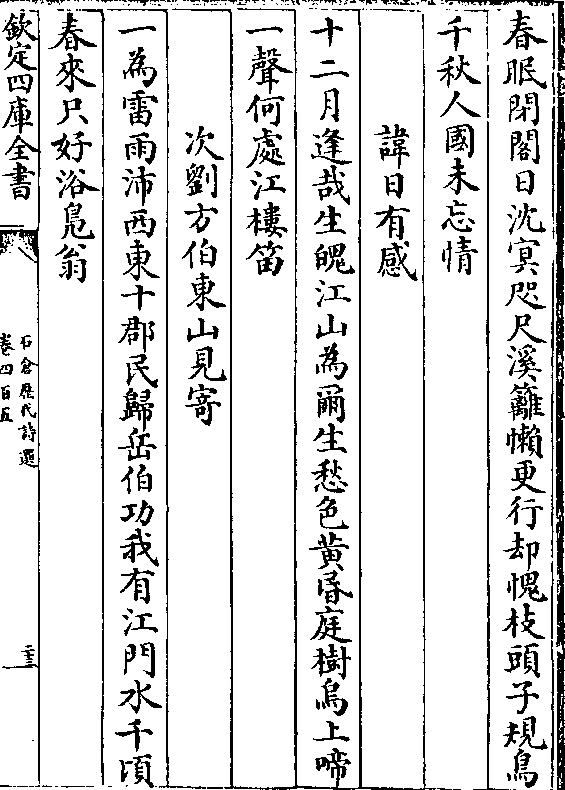 春眠閉閣日沈㝠咫尺溪籬懶更行却愧枝頭子規鳥
千秋人國未忘情
諱日有感
十二月逢哉生魄江山為爾生愁色黄昏庭樹烏上啼
一聲何處江樓笛
次劉方伯東山見寄
一為雷雨沛西東十郡民歸岳伯功我有江門水千頃
春來只好浴鳬翁
欽定四庫全書
石倉歷代詩選
卷四百五